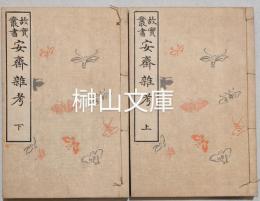 故實叢書
安齋雜考
上
故實叢書
安齋雜考
下
榊山文庫